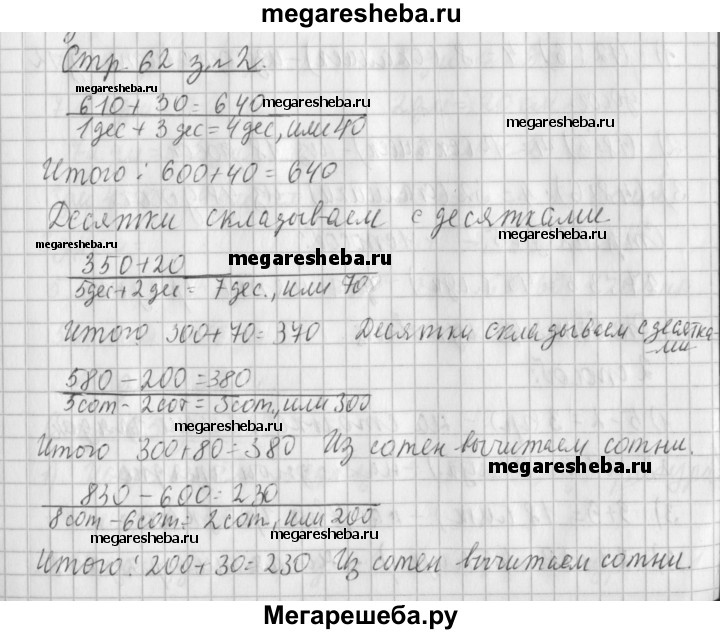 megaresheba.ru
Стр. 62 з. №2.
megaresheba.ru
610 + 30 = 640 megaresheba.ru
1 дес + 3 дес = 4 дес, или 40
megaresheba.ru
Итого: 600 + 40 = 640
Десятки складываем с десятками.
megaresheba.ru
megaresheba.ru
350 + 20 megaresheba.ru
5 дес + 2 дес = 7 дес., или 70
Итого 300 + 70 = 370 Десятки складываем с десятка-
ми
580 - 200 = 380
5 сот - 2 сот = 3 сот, или 300
megaresheba.ru
Итого 300 + 80 = 380 Из сотен вычитаем сотни.
megaresheba.ru
830 - 600 = 230
8 сот - 6 сот = 2 сот, или 200
megaresheba.ru megaresheba.ru
Итого: 200 + 30 = 230 Из сотен вычитаем сотни.
Мегарешеба.ру